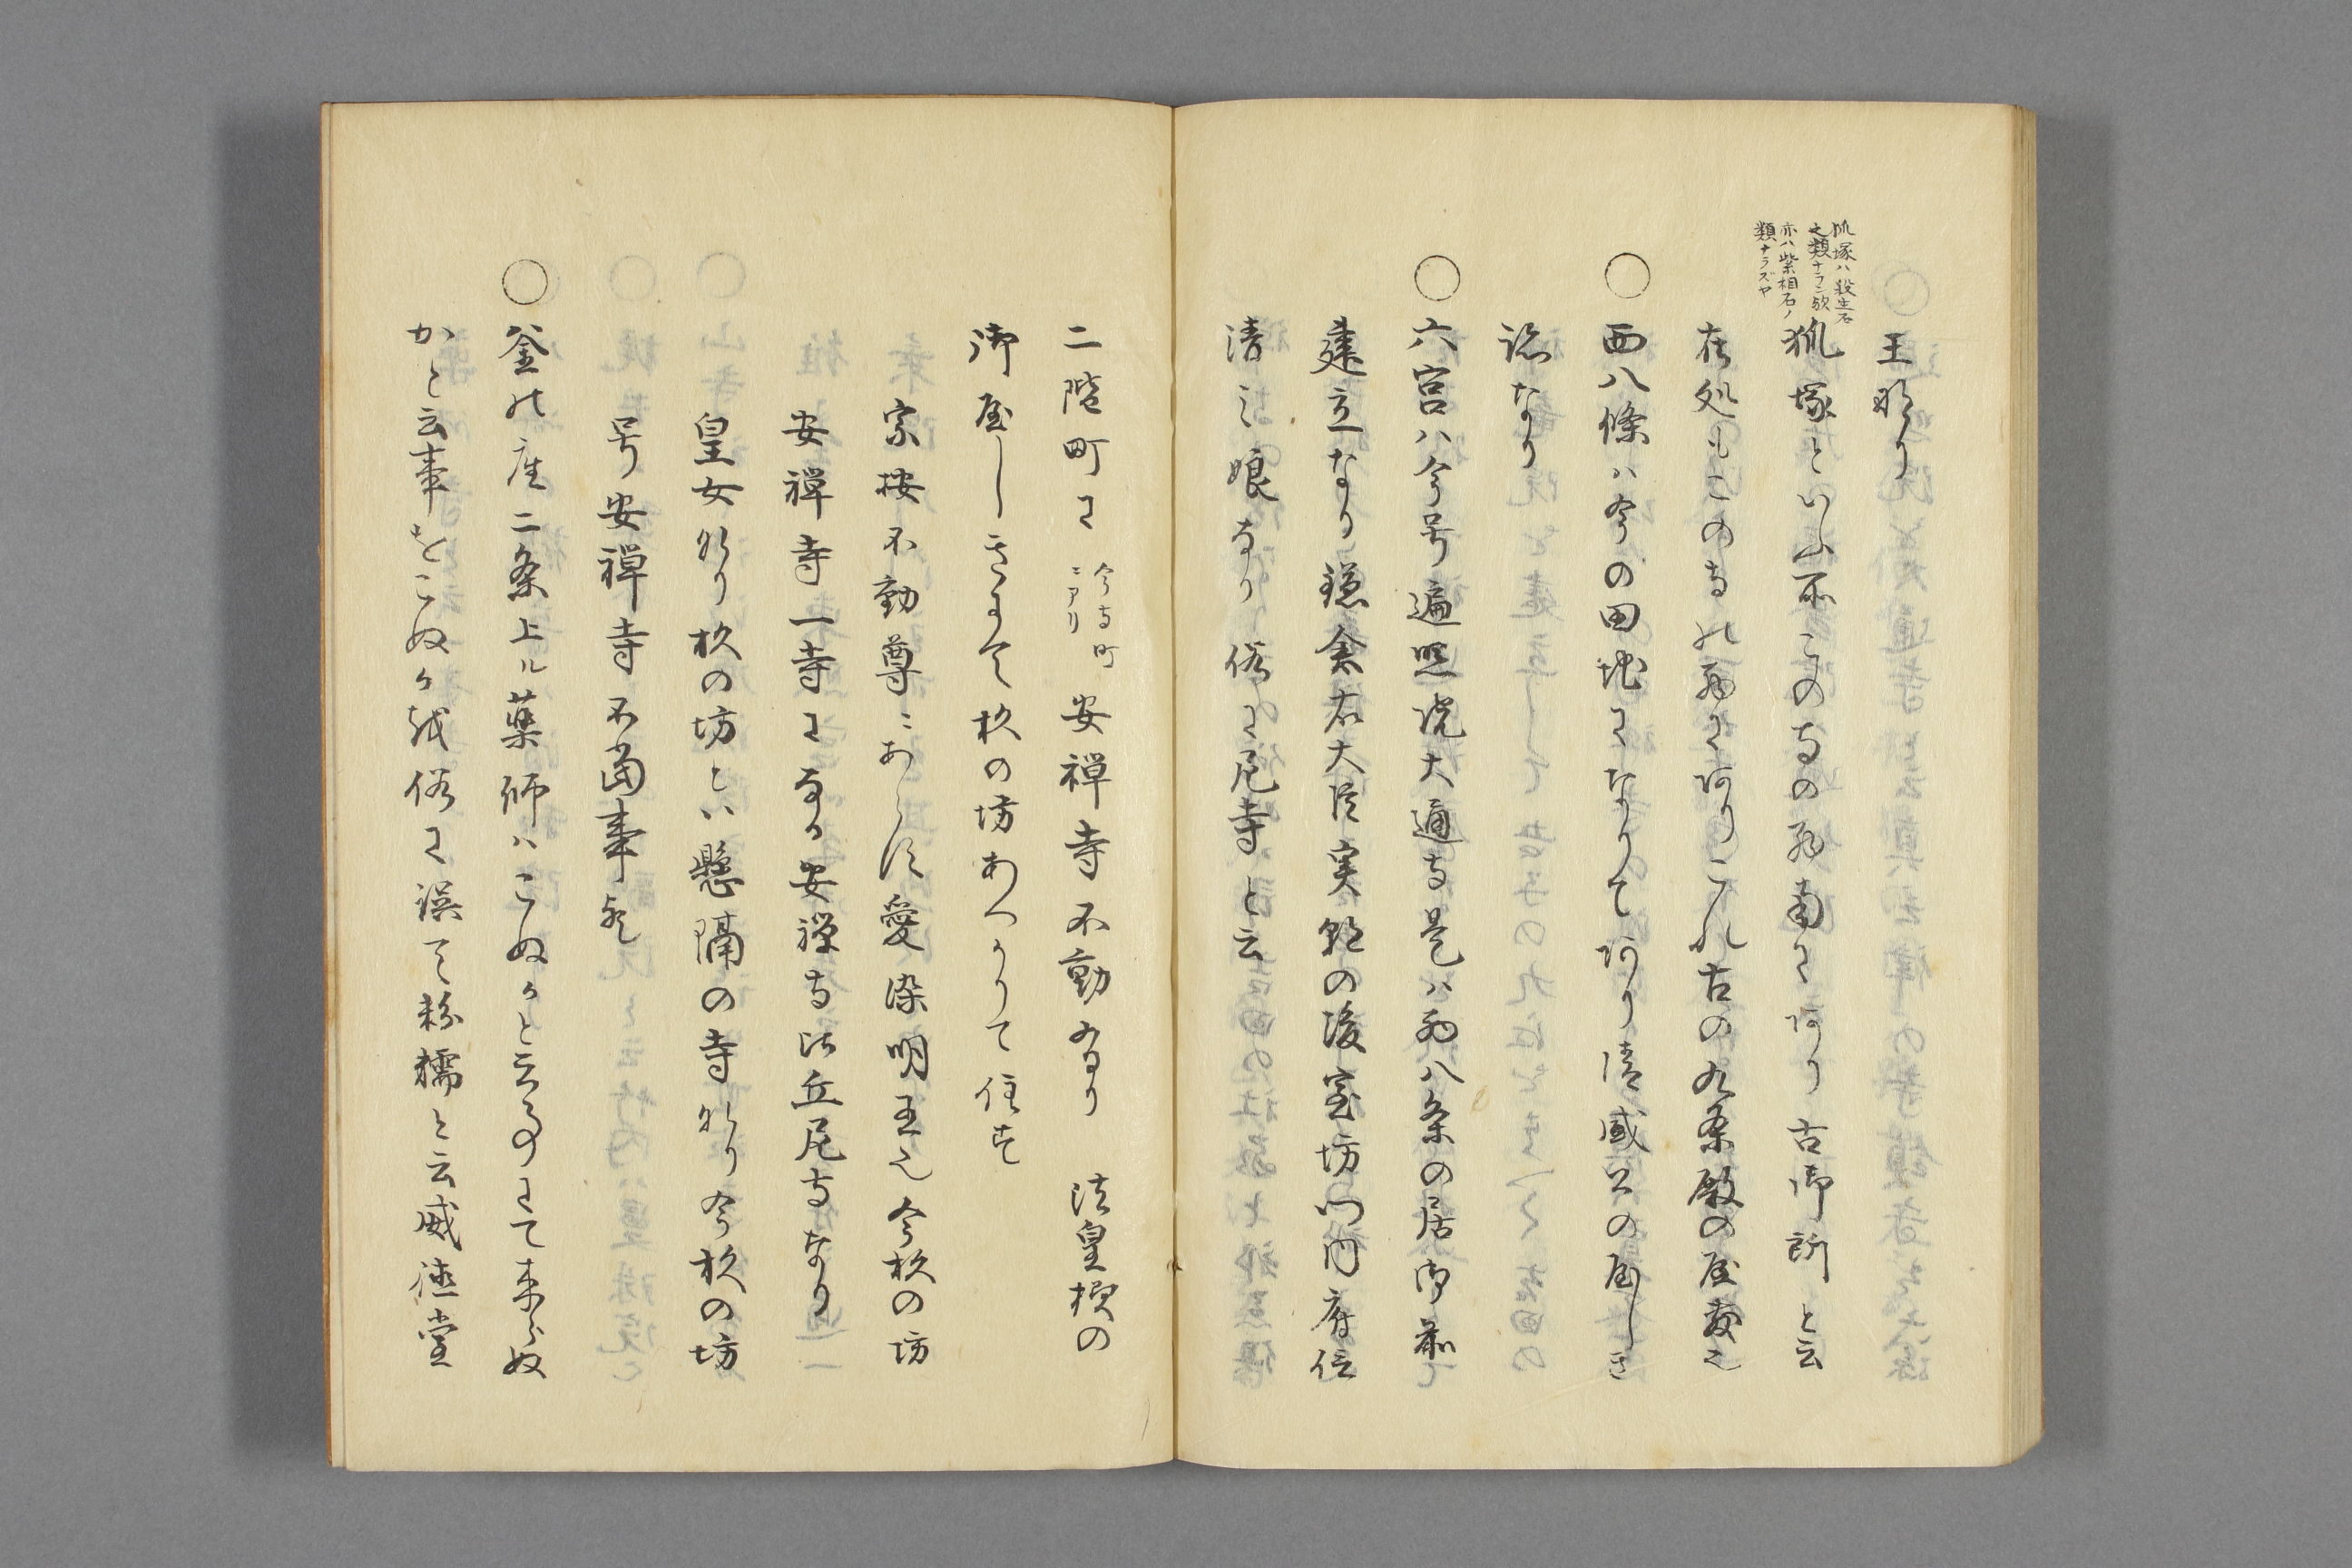 王なり
狐塚ハ殺生石
之類ナラン歟
亦ハ紫相石ノ
類ナラズヤ
狐塚といふ所この寺の西南に有り古御所と云
在処もこの寺の西に有りこれ古の九条殿の屋敷也
○西八條ハ今の田地になりて有り清盛公の屋しき
跡なり
○六宮ハ今号遍照院大通寺是ハ西八条の居御前
建立なり鎌倉右大臣実朝の後室坊門内府信
清之娘なり俗に尼寺と云
二階町に今寺町ニアリ安禅寺不動有り 法皇様の
御屋しきにて杦の坊あつかりて住す
宗按不動尊ニあらす愛染明王也今杦の坊
安禅寺一寺になる安禅寺比丘尼寺なり
皇女なり杦の坊とハ懸隔の寺なり今杦の坊
号安禅寺不当事歟
○釜の座二条上ル薬師ハこぬかと云るのにて来らぬ
かと云事をこぬか我俗に誤て粉糯と云威徳堂